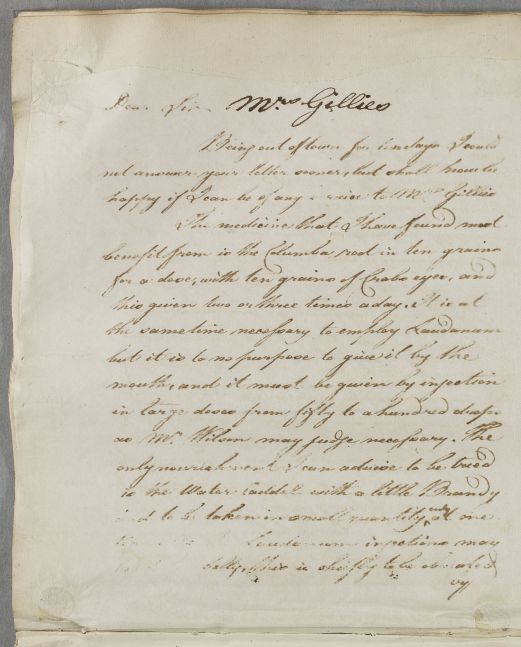 Dear Sir Mrs Gillies
Being out of town for ten days I could
not answer your letter sooner, but shall now be
happy if I can be of any service to Mrs Gillies
The medicine that I have found most
benefit from is the Columba root in ten grains
for a dose, with ten grains of Crabs eyes, and
this given two or three times a day. It is at
the same time necessary to employ Laudanum
but it is to no purpose to give it by the
mouth, and it must be given by injection
in large doses from fifty to a hundred drops
as Mr. Wilson may judge necessary. The
only nourishment I can advise to be tried
is the Water with a little Brandy
and to be taken in small quantity only at one
Laudanum injections may
this is chiefly to be
by